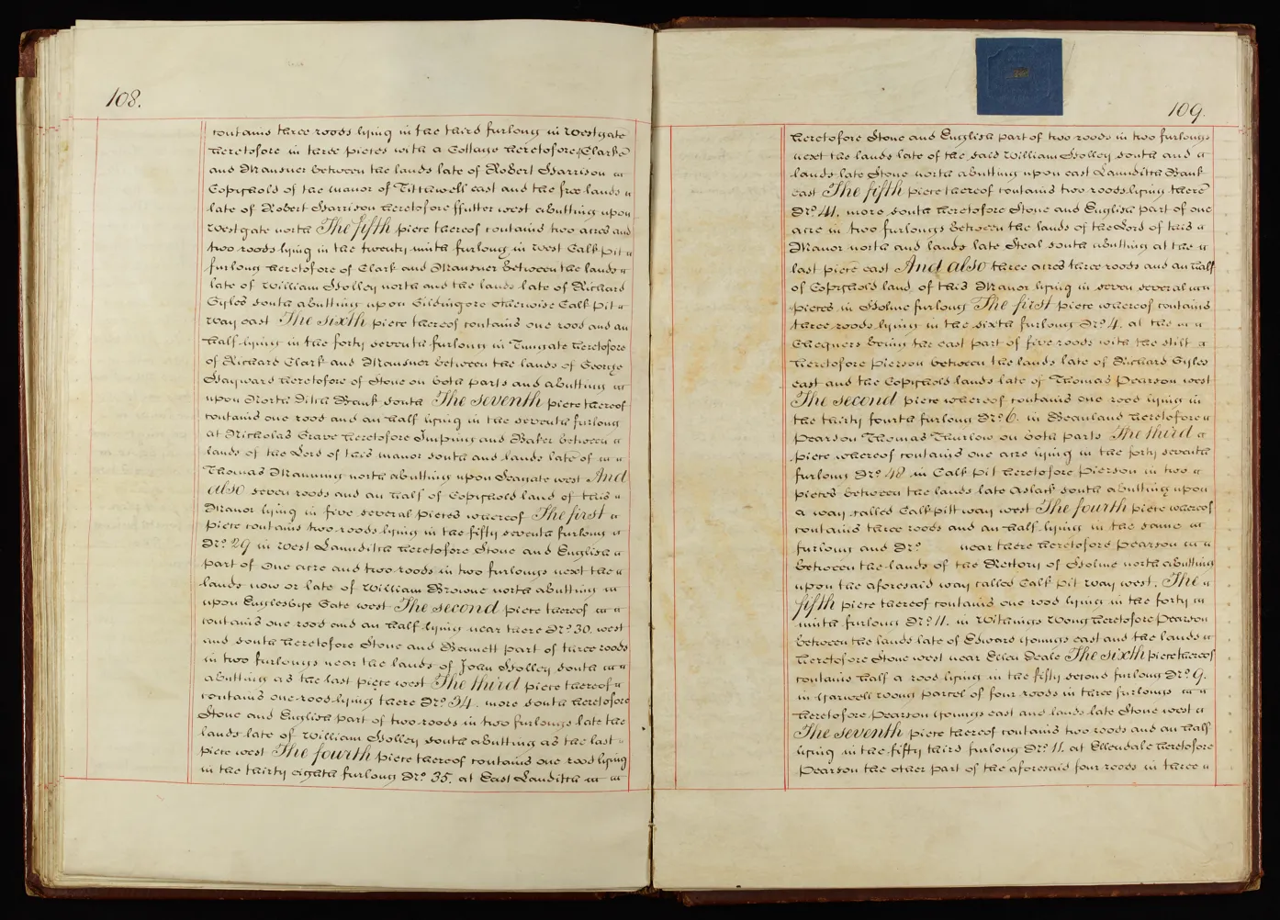 108.
contains three roods lying in the third furlong in Westgate
heretofore in three pieces with a Cottage heretofore Clarke
and Mausner between the lands late of Robert Harrison
Copyhold of the manor of Titchwell east and the free lands
late of Robert Harrison heretofore ffutter west abutting upon
Westgate north The fifth piece thereof contains two acres and
two roods lying in the twenty ninth furlong in West Calk Pit
furlong heretofore of Clark and Mausner between the lands
late of William Holley north and the lands late of Richard
Gyles south abutting upon Gildingore otherwise Calk Pit
way east The sixth piece thereof contains one rood and an
half lying in the forty seventh furlong in Tungate heretofore
of Richard Clark and Mausner between the lands of George
Hayward heretofore of Stone on both parts and abutting
upon North Ditch Bank south The seventh piece thereof
contains one rood and an half lying in the seventh furlong
at Nicholas Grave heretofore Imping and Baker between
lands of the Lord of this manor south and lands late of
Thomas Manning north abutting upon Seagate west And
also seven roods and an half of Copyhold land of this
Manor lying in five several pieces whereof The first
piece contains two roods lying in the fifty seventh furlong
No. 29 in West Launditch heretofore Stone and English
part of One acre and two roods in two furlongs next the
lands now or late of William Browne north abutting
upon Englesbye Gate west The second piece thereof
contains one rood and an half lying near there No. 30. west
and south heretofore Stone and Bennett part of three roods
in two furlongs near the lands of John Holley south
abutting as the last piece west The third piece thereof
contains one rood lying there No. 34. more south heretofore
Stone and English part of two roods in two furlongs late the
lands late of William Holley south abutting as the last
piece west The fourth piece thereof contains one rood lying
in the thirty eighth furlong No. 35. at East Landitch
109.
heretofore Stone and English part of two roods in two furlongs
next the lands late of the said William Holley south and
lands late Stone north abutting upon east Launditch Bank
east The fifth piece thereof contains two roods lying there
No. 41. more south heretofore Stone and English part of one
acre in two furlongs between the lands of the Lord of this
Manor north and lands late Steal south abutting at the
last piece east And also three acres three roods and an half
of Copyhold land of this Manor lying in seven several
pieces in Holme furlong The first piece whereof contains
three roods lying in the sixth furlong No. 4. at the
Chequers being the east part of five roods with the stilt
heretofore Pierson between the lands late of Richard Gyles
east and the Copyhold lands late of Thomas Pearson west
The second piece whereof contains one rood lying in
the thirty fourth furlong No. 6. in Beanland heretofore
Pearson Thomas Thurlow on both parts The third
piece whereof contains one acre lying in the forty seventh
furlong No. 48 in Calk Pit heretofore Pierson in two
pieces between the lands late Aslack south abutting upon
a way called Calk pitt way west The fourth piece whereof
contains three roods and an half lying in the same
furlong and No. near there heretofore Pearson
between the lands of the Rectory of Holme north abutting
upon the aforesaid way called Calk Pit way west. The
fifth piece thereof contains one rood lying in the forty
ninth furlong No. 11. in Withings Wong heretofore Pearson
between the lands late of Edward Youngs east and the lands
heretofore Stone west near Ellen Deale The sixth piece thereof
contains half a rood lying in the fifty second furlong No. 9.
in Yarwell wong parcel of four roods in three furlongs
heretofore Pearson Youngs east and lands late Stone west
The seventh piece thereof contains two roods and an half
lying in the fifty third furlong No. 11. at Ellendale heretofore
Pearson the other part of the aforesaid four roods in three